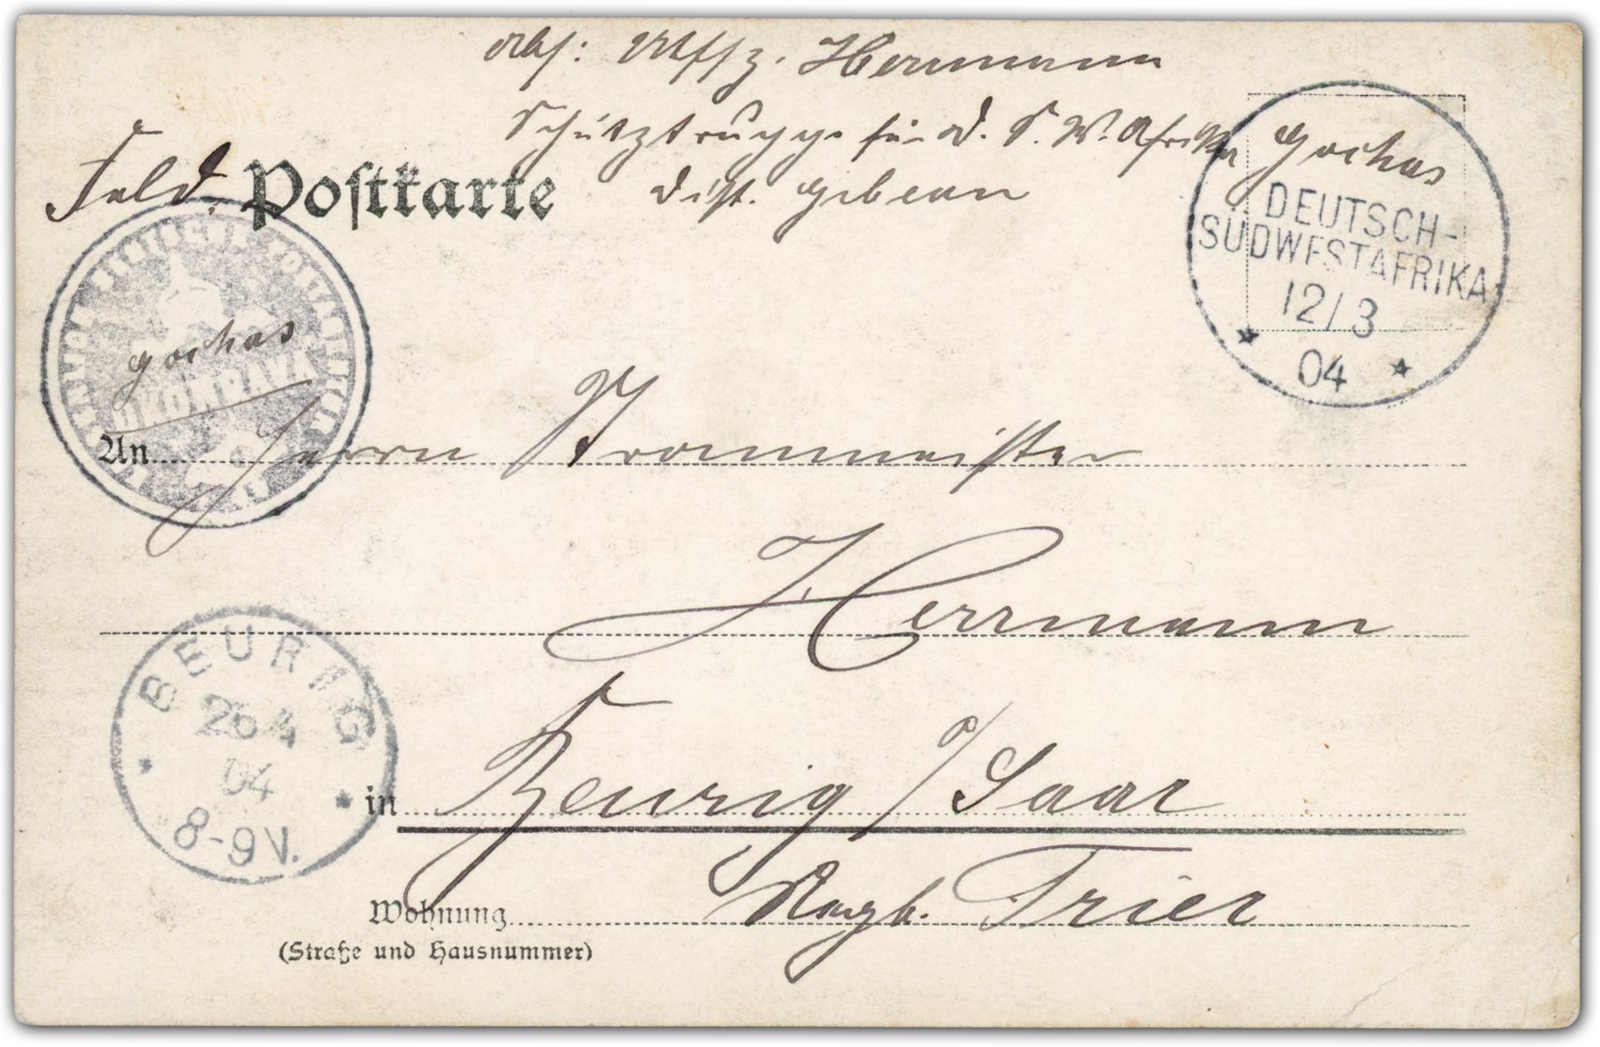 Abs: Uffz. Herrmann
Schutztruppe für D. S. W. Afrika Gochas
Dist. Gibeon
Feld Postkarte
DEUTSCH-
SÜDWESTAFRIKA
12/3
04
Gochas
OKOMBAVA
An Herrn Kronmeister
Herrmann
BEURIG
04
8-9V.
in Beurig a/Saar
Rgzb. Trier
Wohnung
(Straße und Hausnummer)